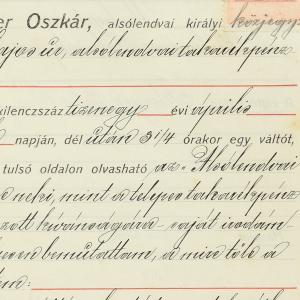 er Oszkár, alsólendvai királyi közjegy
Lajos úr, alsólendvai takarékpénz
kilenczszáz tizenegy évi április
napján, dél után 3 1/4 órakor egy váltót,
tulsó oldalon olvasható az Alsólendvai
neki, mint a telepes takarékpénz
zott kívánságára saját irodám
bemutattam, a mire tőle a